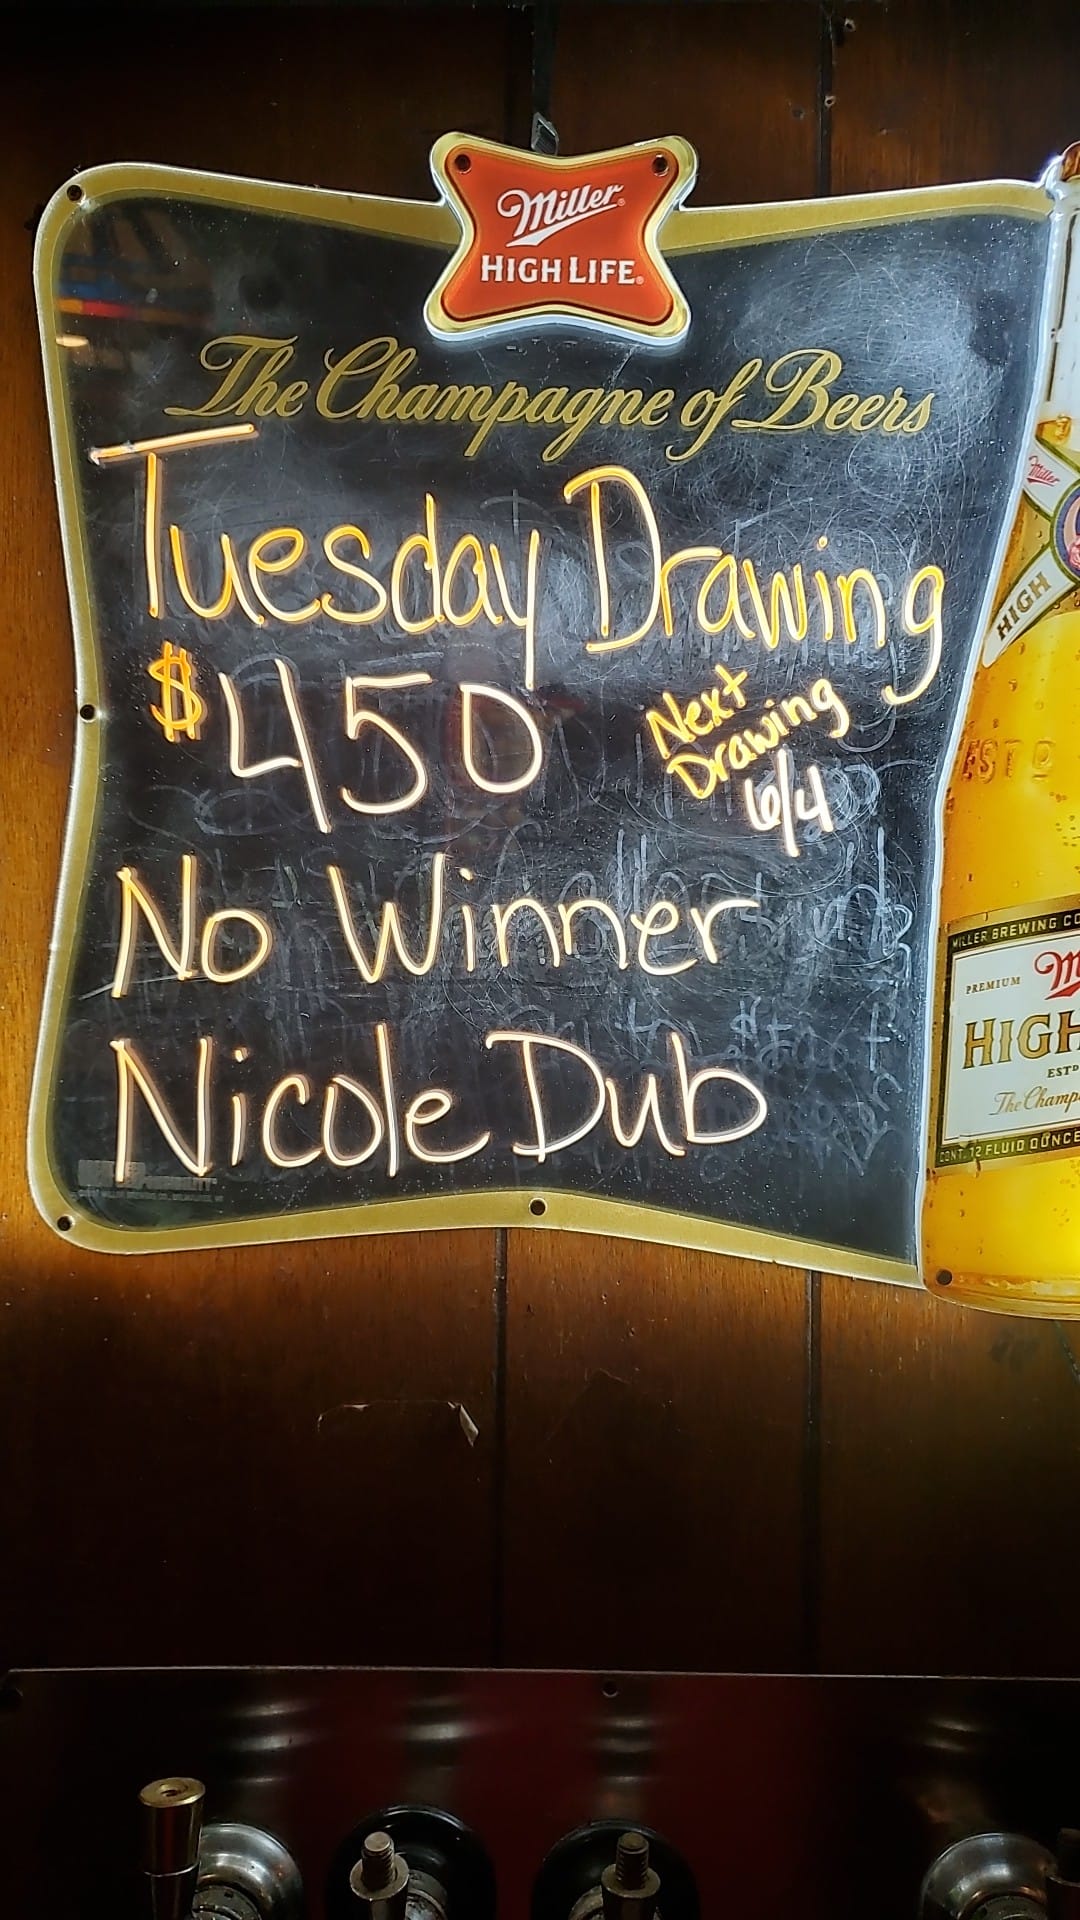 Miller
HIGH LIFE
The Champagne of Beers
Tuesday Drawing
$450
Next
Drawing
6/4
No Winner
Nicole Dub
Miller
HIGH
EST D
MILLER BREWING CO
PREMIUM
M
HIGH
ESTD
The Champ
CONT. 72 FLUID OUNCE